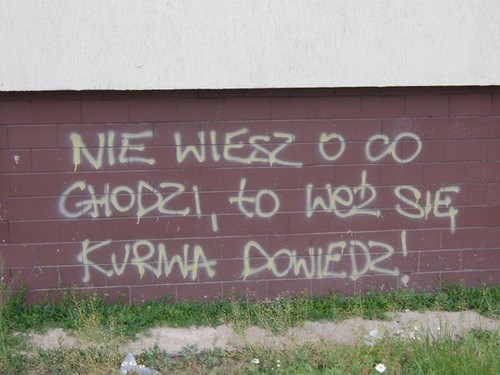 NIE WIESZ O CO
CHODZI, to WEŹ SIĘ
KURWA DOWIEDZ!